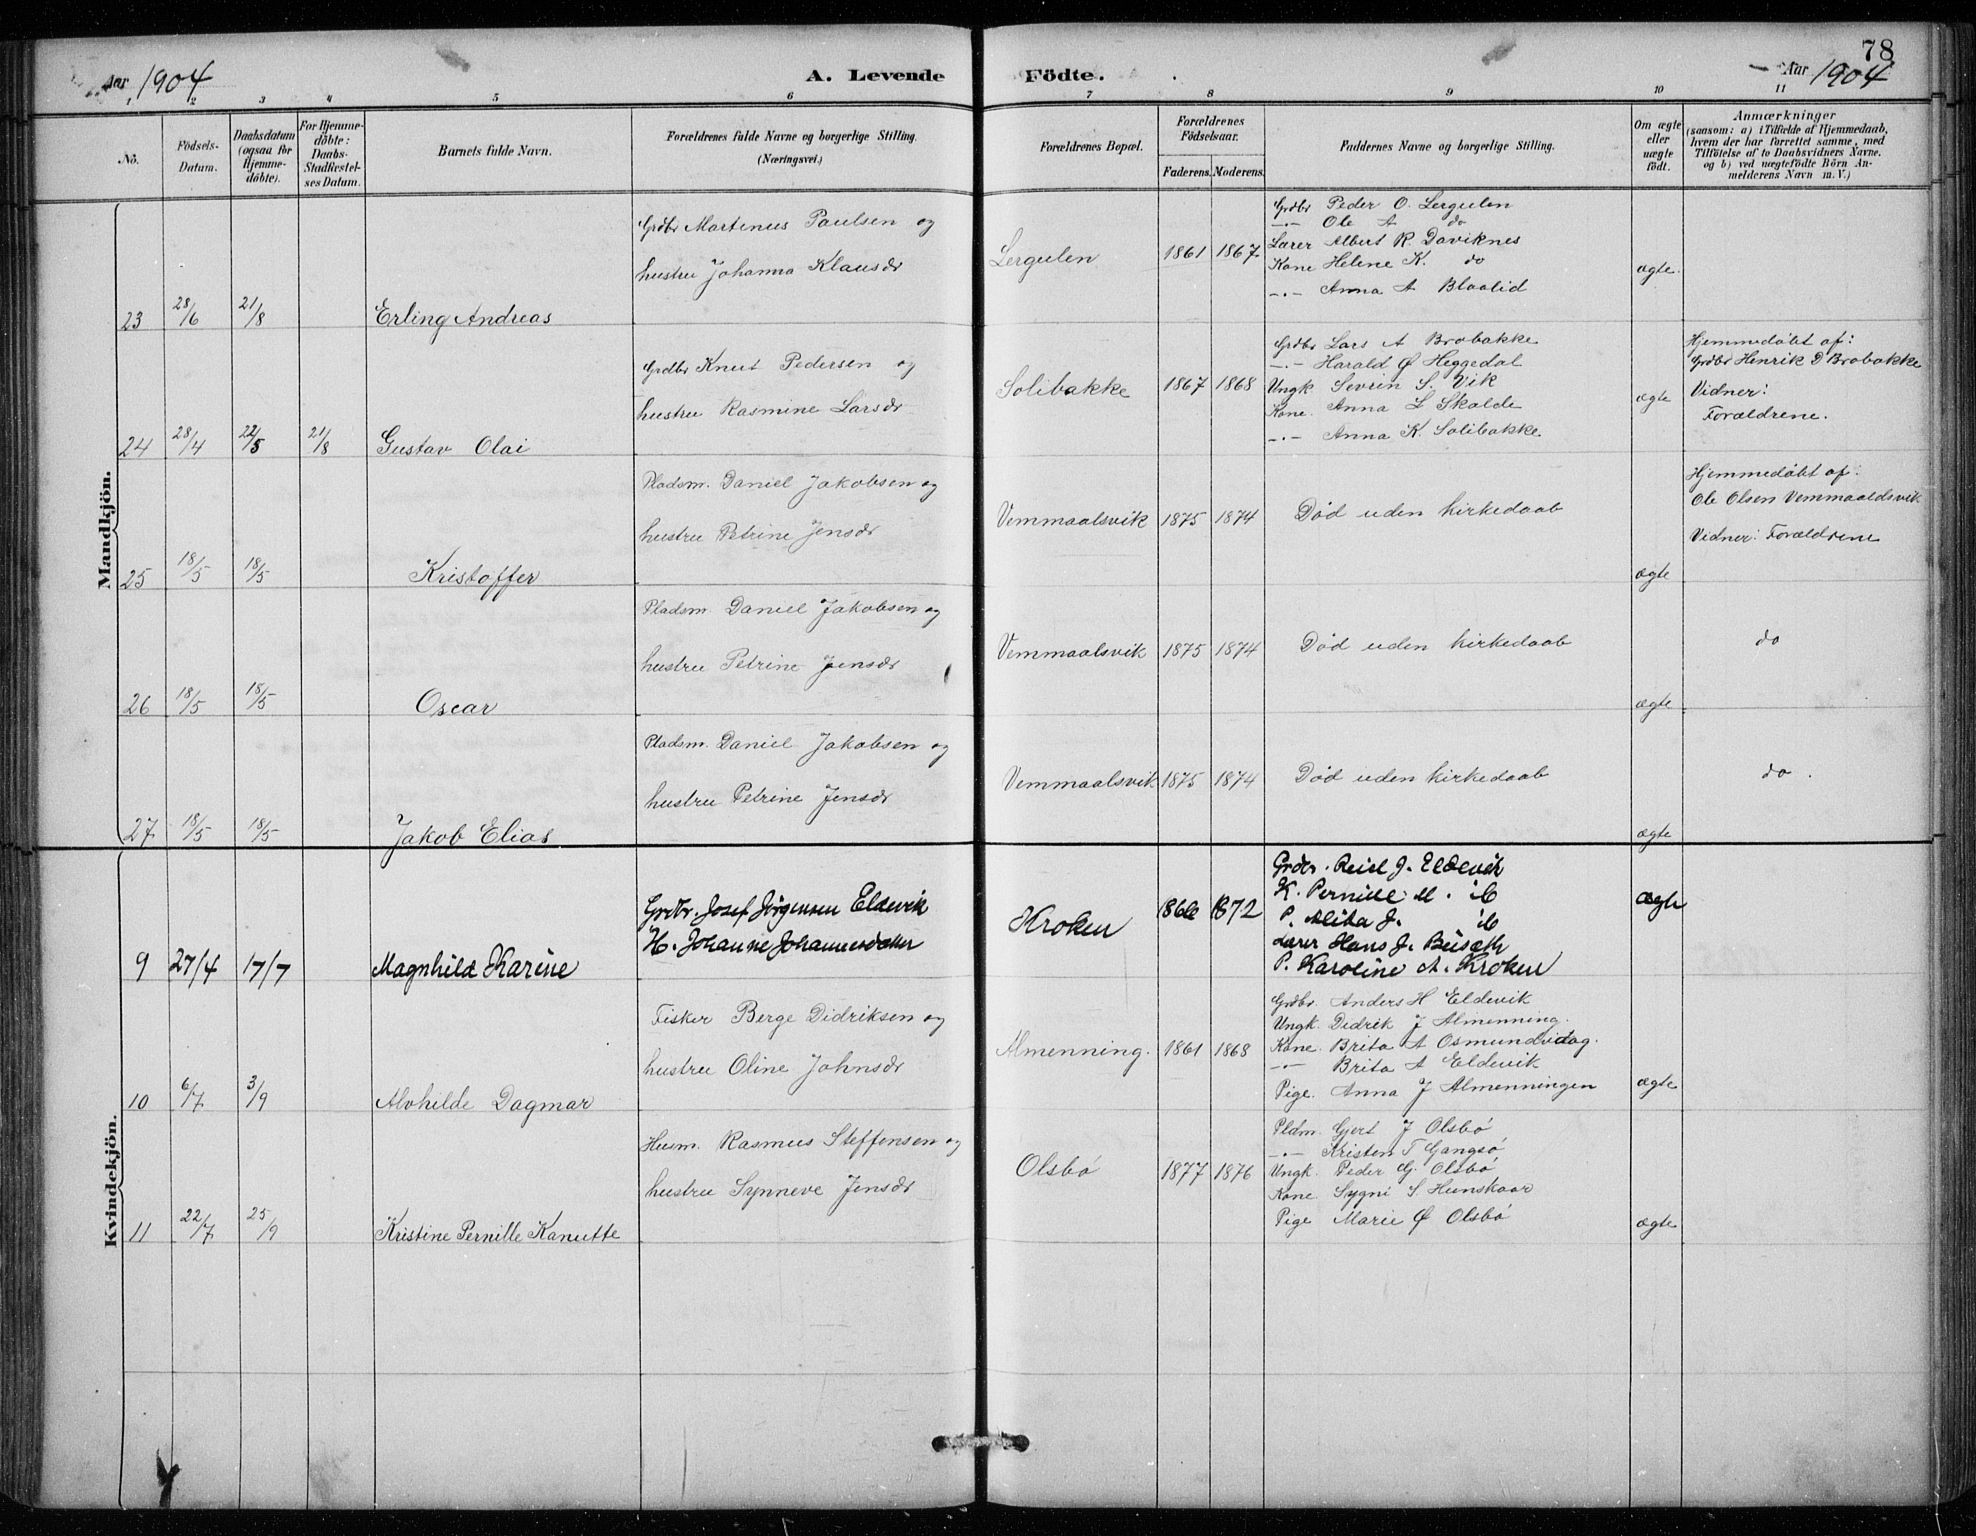 78
Aar 1904
A. Levende Födte.
Aar 1904
1 2 3 4 5 6 7 8 9 10 11
No.
Födsels-
Datum.
Daabsdatum
(ogsaa for
Hjemme-
döbte).
For Hjemme-
döbte:
Daabs-
Stadfæstel-
ses Datum.
Barnets fulde Navn.
Forældrenes fulde Navne og borgerlige Stilling.
(Næringsvei.)
Forældrenes Bopæl.
Forældrenes
Födselsaar.
Faderens. Moderens.
Faddernes Navne og borgerlige Stilling.
Om ægte
eller
uægte
födt.
Anmærkninger
(saasom: a) i Tilfælde af Hjemmedaab,
hvem der har forrettet samme, med
Tilföielse af to Daabsvidners Navne.
og b) ved uægtefödte Börn An-
melderens Navn m. V.)
Mandkjön.
23 28/6 21/8 Erling Andreas
Grdbr Martinus Paulsen og
hustru Johanna Klausdr
Lergulen 1861 1867
Grdbr Peder O. Lergulen
-"- Ole A do
Lærer Albert R. Daviknes
Kone Helene K. do
-"- Anna A Blaalid
ægte.
24 28/4 22/5 21/8 Gustav Olai
Grdbr Knut Pedersen og
hustru Rasmine Larsdr
Solibakke 1867 1868
Grdbr Lars A Brobakke
-"- Harald Ø Heggedal
Ungk Sevrin S. Vik
Kone. Anna L Skalde
-"- Anna K. Solibakke
ægte
Hjemmedøbt af:
Grdbr Henrik D Brobakke
Vidner:
Forældrene.
25 18/5 18/5 Kristoffer
Pladsm. Daniel Jakobsen og
hustru Petrine Jensdr
Vemmaalsvik 1875 1874
Død uden kirkedaab
ægte
Hjemmedøbt af:
Ole Olsen Vemmaaldsvik
Vidner: Forældrene
26 18/5 18/5 Oscar
Pladsm. Daniel Jakobsen og
hustru Petrine Jensdr
Vemmaalsvik 1875 1874
Død uden kirkedaab
ægte
do
27 18/5 18/5 Jakob Elias
Pladsm. Daniel Jakobsen og
hustru Petrine Jensdr
Vemmaalsvik 1875 1874
Død uden kirkedaab
ægte
do.
Kvindekjön.
9 27/4 17/7 Magnhild Karine
Grdbr. Josef Jörgensen Eldevik
H. Johanne Johannesdatter
Kroken 1866 1872
Grdbr. J. Eldevik
K. Pernille M. ib
P. Alida J. ib
Lærer Hans J.
P. Karoline A. Kroken
ægte
10 6/7 3/9 Alvhilde Dagmar
Fisker Berge Didriksen og
hustru Oline Johnsdr
Almenning. 1861 1868
Grdbr. Anders H Eldevik
Ungk. Didrik J Almenning.
Kone. Brita A Osmundvaag.
-"- Brita A Eldevik
Pige. Anna J Almenningen
ægte
11 22/7 25/9 Kristine Pernille Kanutte
Husm. Rasmus Steffensen og
hustru Synneve Jensdr
Olsbø 1877 1876
Pldm. Gjert J Olsbø
-"- Kristen T Gangsø
Ungk. Peder G. Olsbø
Kone. Sygni S Hunskaar
Pige Marie Ø Olsbø
ægte